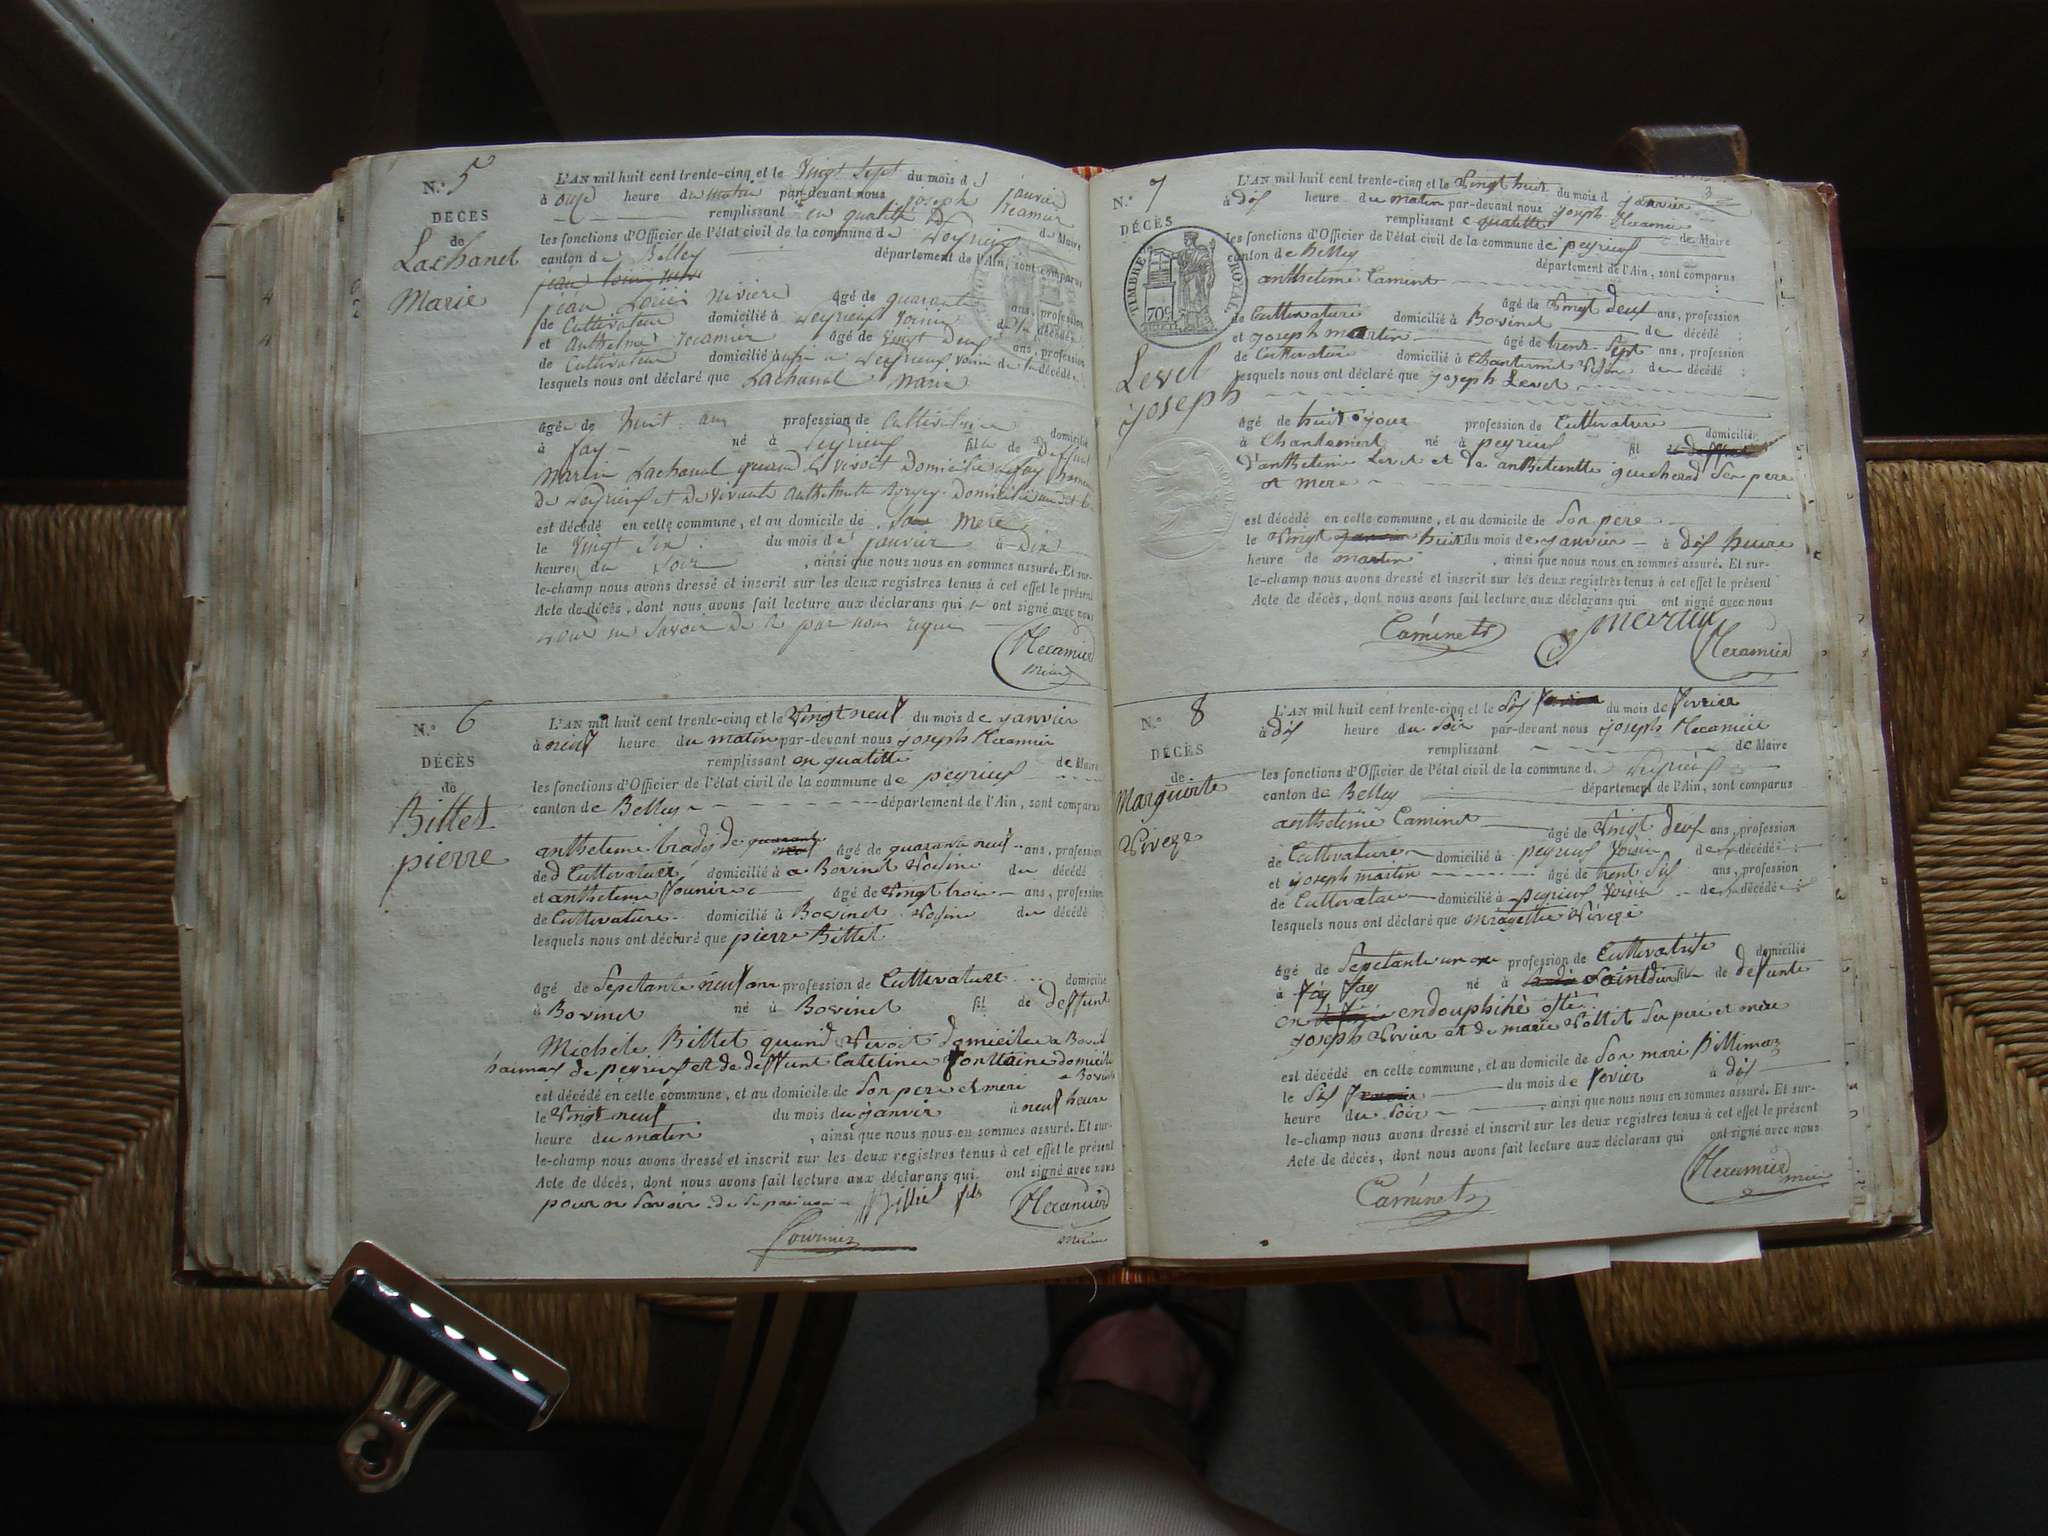 N.º 5
DÉCÈS
de
Lachanel
Marie
L'AN mil huit cent trente-cinq et le Vingt Sept du mois d
janvier
à onze heure du matin par-devant nous joseph Recamier
remplissant en qualité de Maire
les fonctions d'Officier de l'état civil de la commune de Peyrieu
canton de Belley département de l'Ain, sont comparus
jean Louis
jean Louis Riviere âgé de quarante ans, profession
de Cultivateur domicilié à Peyrieux Voisin de la décédée
et Anthelme Recamier âgé de Vingt Deux ans, profession
de Cultivateur domicilié aussi à Peyrieux voisin de la décédée
lesquels nous ont déclaré que Lachanal Marie
âgée de huit ans profession de Cultivatrice domicilié
à fay né à Peyrieux fille de Deffunt
Martin Lachanal quand il vivoit Domicilié à fay hameau
de Peyrieux et de vivante Domiciliée
est décédé en cette commune, et au domicile de Sa Mere
le Vingt Six du mois de janvier à Dix
heures du Soir , ainsi que nous nous en sommes assuré. Et sur-
le-champ nous avons dressé et inscrit sur les deux registres tenus à cet effet le présent
Acte de décès, dont nous avons fait lecture aux déclarans qui ont signé avec nous
pour ne Savoir de ce par nous requis
Recamier
N.º 6
DÉCÈS
de
Billet
pierre
L'AN mil huit cent trente-cinq et le Vingt neuf du mois de janvier
à neuf heure du matin par-devant nous joseph Recamier
remplissant en qualitte de Maire
les fonctions d'Officier de l'état civil de la commune de peyrieux
canton de Belley département de l'Ain, sont comparus
anthelime âgé de quarante neuf ans, profession
de d Cultivature domicilié à a Bovinel Voisine du décédé
et anthelime founire âgé de Vingt troix ans, profession
de Cultivature domicilié à Bovinel Voisine du décédé
lesquels nous ont déclaré que pierre Billet
âgé de Sepetante neuf ans profession de Cultivature domicilié
à Bovinel né à Bovinel fil de deffunt
Michele Billet quand Vivoit domicilie a Bovil
haimas de peyrieux et de deffunt Cateline fontaine domicile
a Bovinel
est décédé en cette commune, et au domicile de Son pere et mere
le Vingt neuf du mois du janvir à neuf heure
heure du matin , ainsi que nous nous en sommes assuré. Et sur-
le-champ nous avons dressé et inscrit sur les deux registres tenus à cet effet le présent
Acte de décès, dont nous avons fait lecture aux déclarans qui ont signé avec nous
pour ne Savoir de Billiet fils Recamier
Fournier
N.º 7
DÉCÈS
TIMBRE ROYAL
70 C
Level
joseph
L'AN mil huit cent trente-cinq et le Vingt huit du mois d janvier
3
à dix heure du matin par-devant nous joseph Recamier
remplissant e qualitte de Maire
les fonctions d'Officier de l'état civil de la commune de peyrieux
canton de Belley département de l'Ain, sont comparus
anthelime Caminet
âgé de Vingt deux ans, profession
de Cultivature domicilié à Bovinel de décédé
et joseph martin âgé de trent Sept ans, profession
de Cultivature domicilié à Chantemerl Voisin de décédé
lesquels nous ont déclaré que joseph Level
âgé de huit jour profession de Cultivature domicilié
à Chantemerl né à peyrieux fil
d'anthelime Level et de anthelmette guicherod Son pere
et mere
est décédé en cette commune, et au domicile de Son pere
le Vingt huit du mois de janvier à dix heure
heure de matin , ainsi que nous nous en sommes assuré. Et sur-
le-champ nous avons dressé et inscrit sur les deux registres tenus à cet effet le présent
Acte de décès, dont nous avons fait lecture aux déclarans qui ont signé avec nous
Caminet Recamier
N.º 8
DÉCÈS
de
Marguirite
Viveze
L'AN mil huit cent trente-cinq et le Six du mois de fevrier
à dix heure du Soir par-devant nous joseph Recamier
remplissant de Maire
les fonctions d'Officier de l'état civil de la commune d Peyrieux
canton de Belley département de l'Ain, sont comparus
anthelime Caminet âgé de Vingt deux ans, profession
de Cultivature domicilié à peyrieux Voisin de décédé
et joseph martin âgé de trent Six ans, profession
de Cultivature domicilié à peyrieux Voisin de décédé
lesquels nous ont déclaré que Viveze
âgé de Sepetante un an profession de Cultivatrise domicilié
à fay fay né à Saint fil de defunte
en endouphinè
joseph Vivier et de marie Vollet Son pere et mere
est décédé en cette commune, et au domicile de Son mari Billimaz
le Six du mois de fevier à dix
heure du Soir , ainsi que nous nous en sommes assuré. Et sur-
le-champ nous avons dressé et inscrit sur les deux registres tenus à cet effet le présent
Acte de décès, dont nous avons fait lecture aux déclarans qui ont signé avec nous
Caminet Recamier